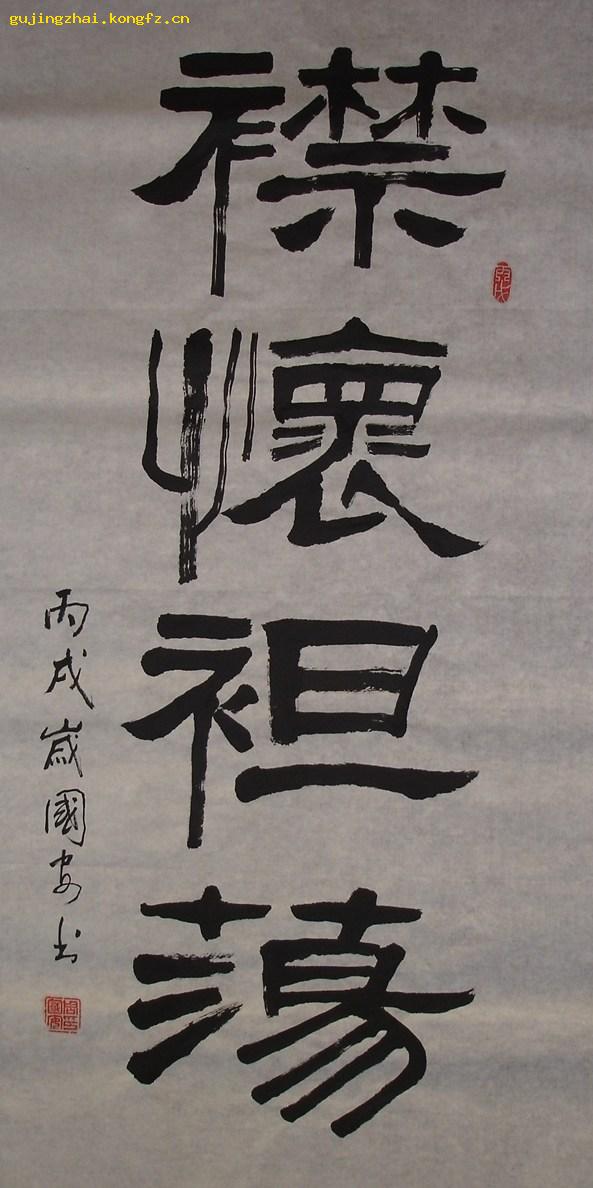 gujingzhai.kongfz.cn
襟懷袒蕩
丙戌歲國安书